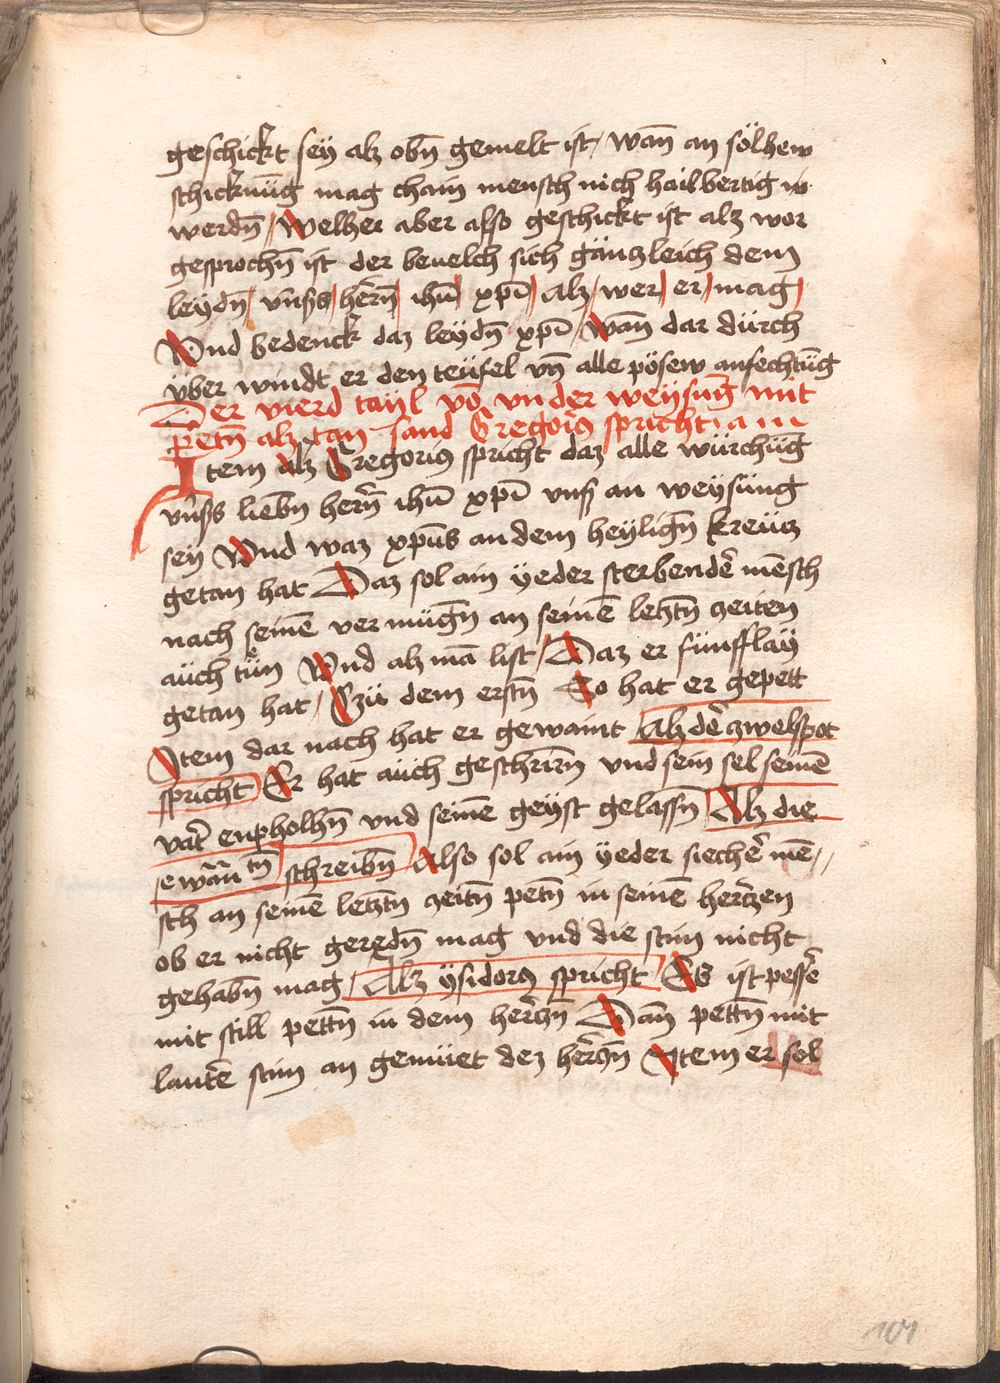 geschickt sey alz obn̄ gemelt ist / wān an sölhew
schicknu̇g mag chain mensch nich hailbertig w
werdn̄ / Welher aber also geschickt ist alz wor
gesprochn̄ ist der beuelch sich gänzleich dem
leydn̄ / vn̄ss / hern̄ / ihū / xpī / alz / wer / er / mag /
Vnd bedenck daz leydn̄ xpī / Wān dar dürch
vber windt er den teüfel vn̄ alle pösew anfechtūg
Der vierd tayl vō vnder weysūg mit
petn̄ alz tan sand Gregoriꝰ spricht
Item Alz Gregoriꝰ spricht daz alle würchūg
vn̄ss liebn̄ hern̄ ihū xpī vnß an weysüng
sey Vnd waz xpūs an dem heylign̄ kreücz
getan hat Daz sol ain yeder sterbendē mēsch
nach seinē ver mügn̄ an seinē letztn̄ zeiten
aüch tün Vnd alz mā list / Daz er fünfflay
getan hat / Czü dem erstn̄ So hat er gepett
Item dar nach hat er gewaint Alz dē zwelfpot
spricht Er hat aüch geschrirn̄ vnd sein sel seinē
vatē enpholhn̄ vnd seinē geyst gelassn̄ Alz die
ewāntn̄ schreibn̄ Also sol ain yeder siechē mē//
sch an seinē letztn̄ zeitn̄ petn̄ in seinē herczen
ob er nicht geredn̄ mag vnd die stim nicht
gehabn̄ mag / Alz ysidorꝰ spricht Es ist pessē
mit still pettn̄ in dem herczn̄ Dān pettn̄ mit
lautē stim an gemüet dez herczn̄ Item er sol
101